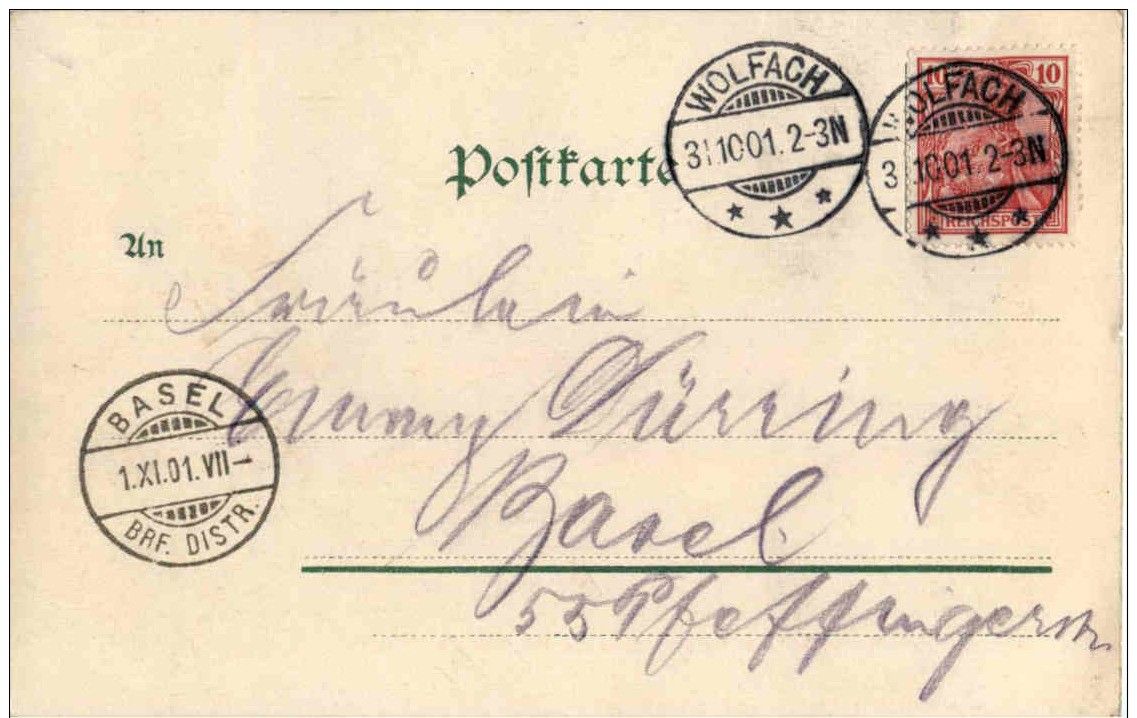 WOLFACH
31.10.01. 2-3N
WOLFACH
3 .10.01. 2-3N
10 10
REICHSPOST
Postkarte
An
Fräulein
Emmy Dürring
Basel
55 Pfeffingerstr.
BASEL
1.XI.01.VII-
BRF. DISTR.